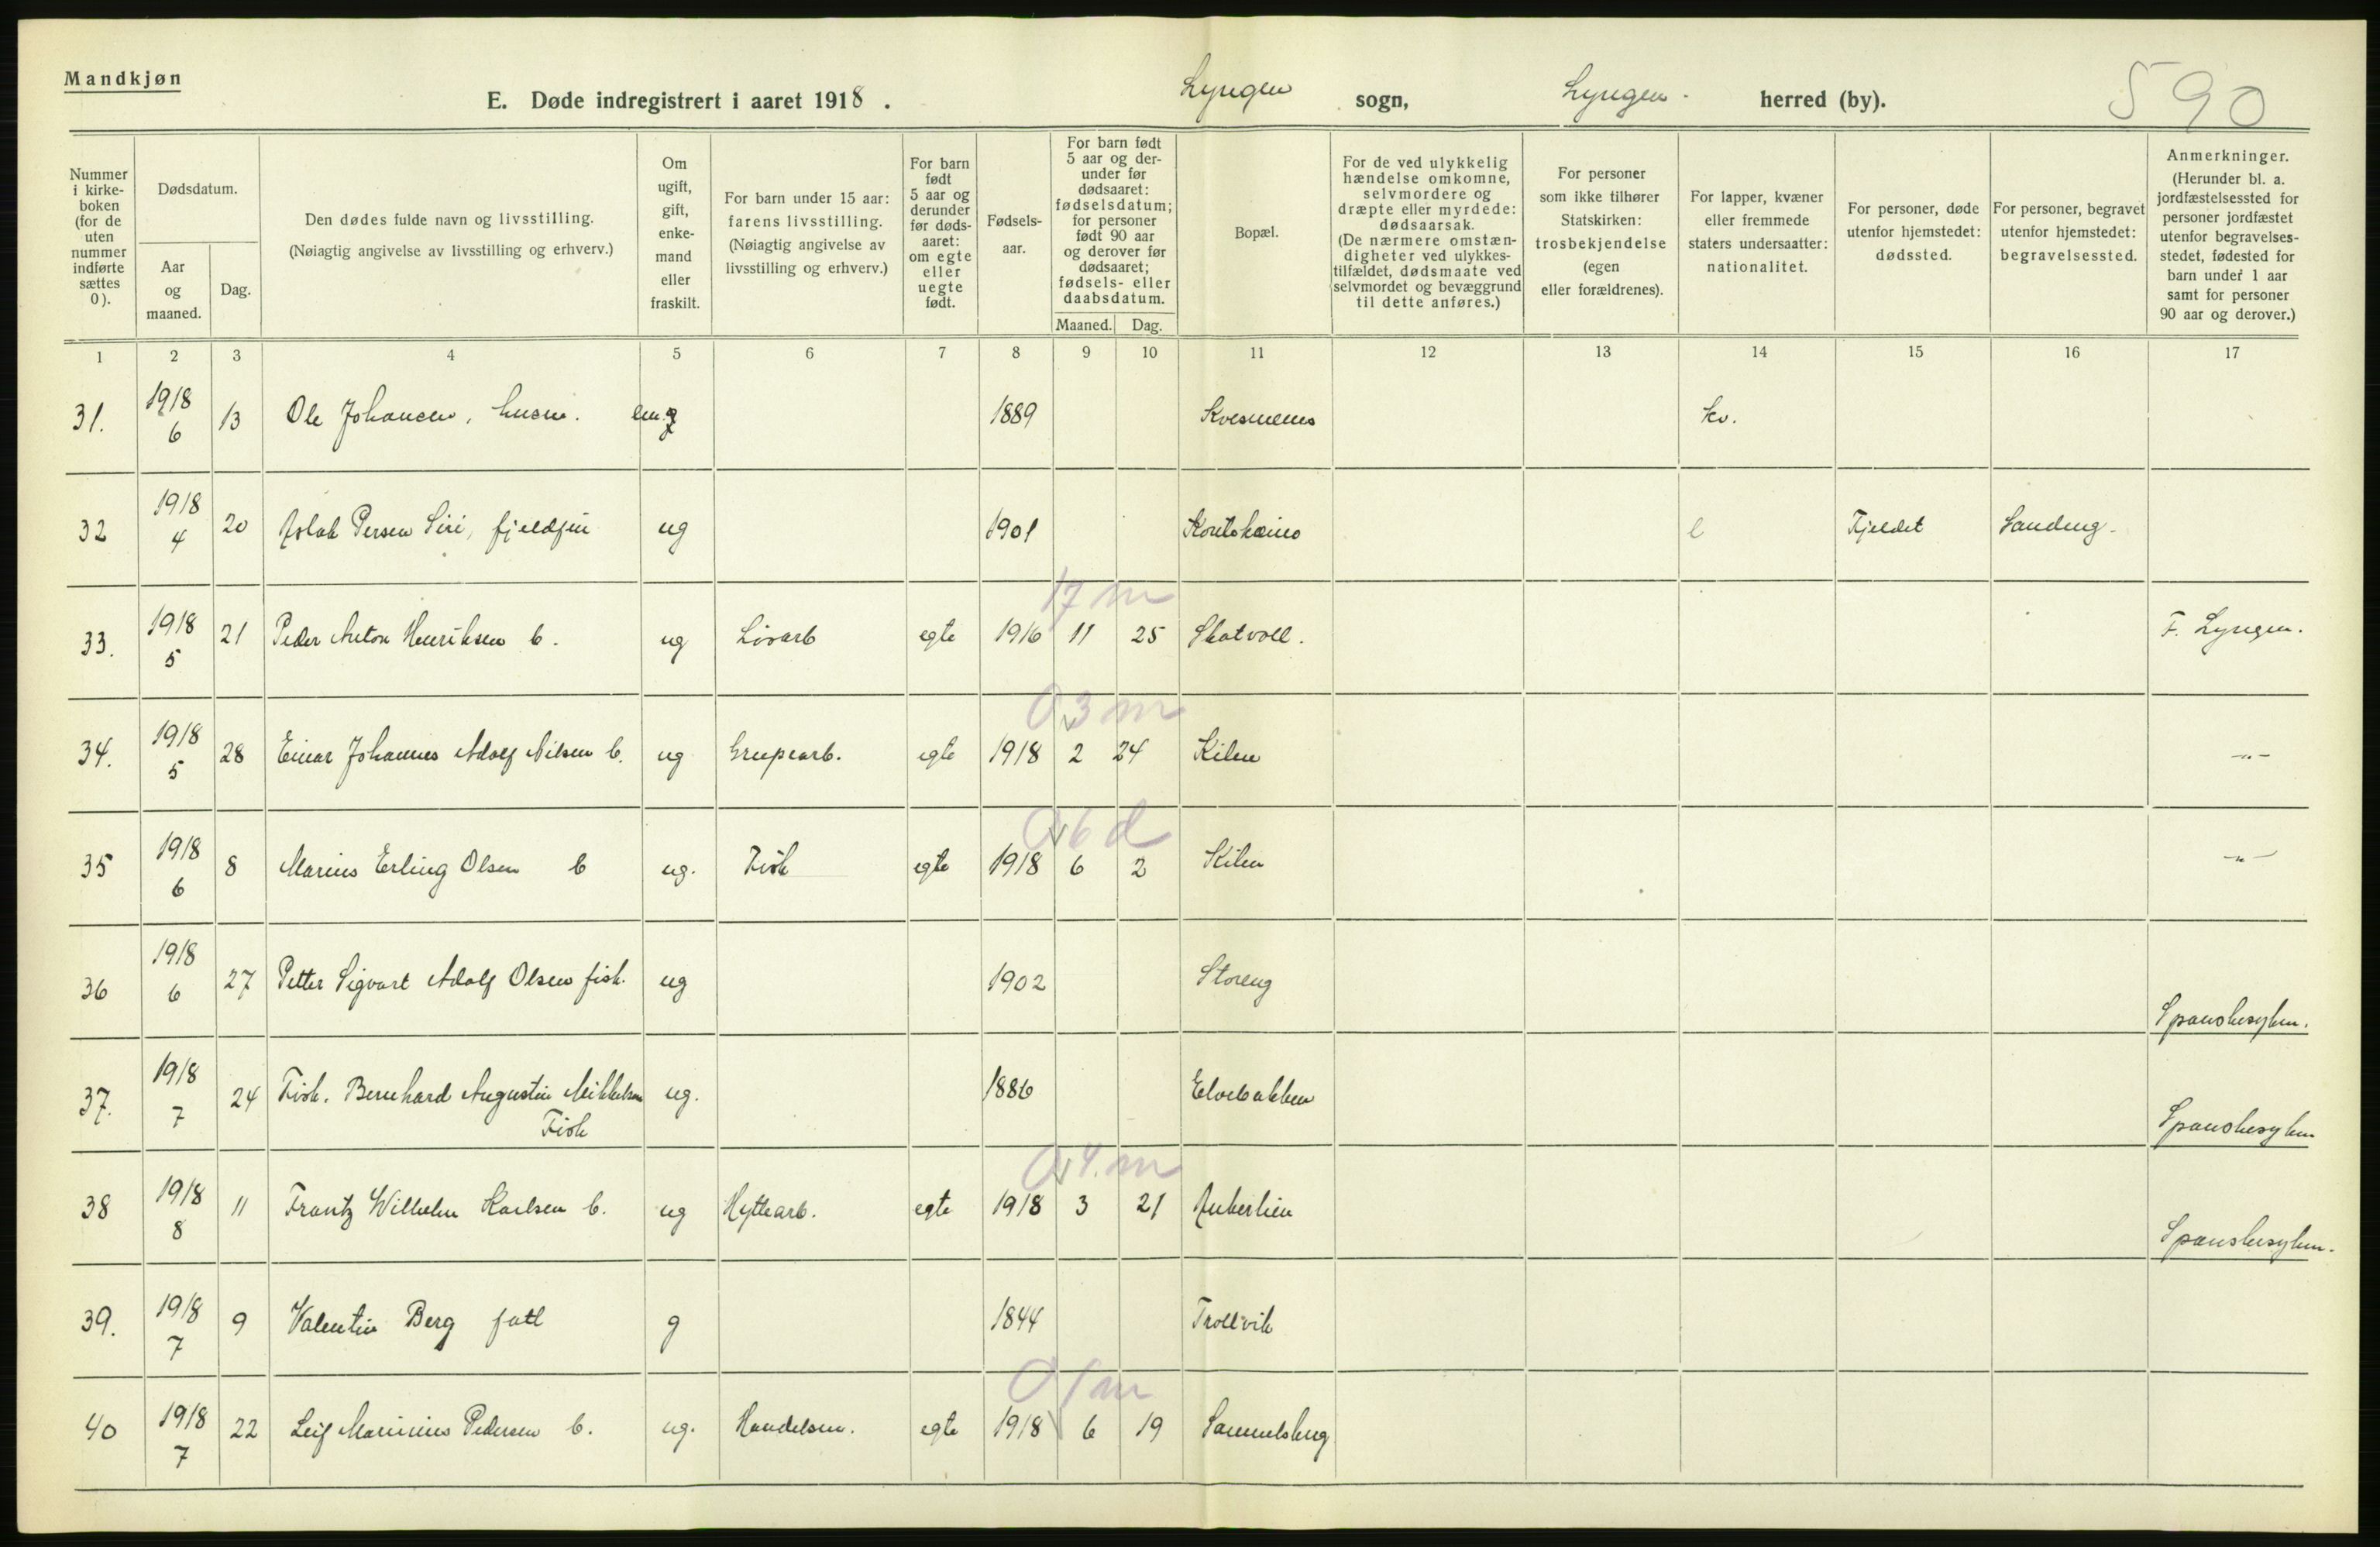 Mandkjøn
E. Døde indregistrert i aaret 1918. Lyngen sogn, Lyngen herred (by). 590
Nummer i kirke-boken (for de uten nummer indførte sættes 0).
Dødsdatum.
Aar og maaned.
Dag.
Den dødes fulde navn og livsstilling.
(Nøiagtig angivelse av livsstilling og erhverv.)
Om ugift, gift, enke-mand eller fraskilt.
For barn under 15 aar: farens livsstilling. (Nøiagtig angivelse av livsstilling og erhverv.)
For barn født 5 aar og derunder før døds-aaret: om egte eller uegte født.
Fødsels-aar.
For barn født 5 aar og der-under før dødsaaret: fødselsdatum; for personer født 90 aar og derover før dødsaaret; fødsels- eller daabsdatum.
Maaned. Dag.
Bopæl.
For de ved ulykkelig hændelse omkomne, selvmordere og dræpte eller myrdede: dødsaarsak. (De nærmere omstæn-digheter ved ulykkes-tilfældet, dødsmaate ved selvmordet og bevæggrund til dette anføres.)
For personer som ikke tilhører Statskirken: trosbekjendelse (egen eller forældrenes).
For lapper, kvæner eller fremmede staters undersaatter: nationalitet.
For personer, døde utenfor hjemstedet: dødssted.
For personer, begravet utenfor hjemstedet: begravelsessted.
Anmerkninger. (Herunder bl. a. jordfæstelsessted for personer jordfæstet utenfor begravelses-stedet, fødested for barn under 1 aar samt for personer 90 aar og derover.)
1 2 3 4 5 6 7 8 9 10 11 12 13 14 15 16 17
31. 1918 6 13 Ole Johansen, husm. 1889 Kvesmenes kv.
32 1918 4 20 Aslak Persen Siri, fjeldfin ug 1901 l Fjeldet Sandeng.
17 m
33. 1918 5 21 Peder Anton Henriksen b. ug Løsarb egte 1916 11 25 Skatvoll. F. Lyngen.
0 3 m
34. 1918 5 28 Einar Johannes Adolf Nilsen b. ug Grupearb. egte 1918 2 24 Kilen -"-
0 6 d
35 1918 6 8 Marius Erling Olsen b ug. Fisk egte 1918 6 2 Kilen -"-
36 1918 6 27 Petter Sigvart Adolf Olsen fisk. ug 1902 Storeng Spanskesyken.
37. 1918 7 24 Fisk. Bernhard Augustin Mikkelsen ug. 1886 Elvebakken Spanskesyken
Fisk
0 4. m
38 1918 8 11 Frantz Wilhelm Karlsen b. ug Hyttearb. egte 1918 3 21 Ankerlien Spanskesyken.
39. 1918 7 9 Valentin Berg fatt g 1844 Trollvik
0 1 m
40 1918 7 22 Leif Marinius Pedersen b. ug. Handelsm. egte 1918 6 19 Samuelsberg